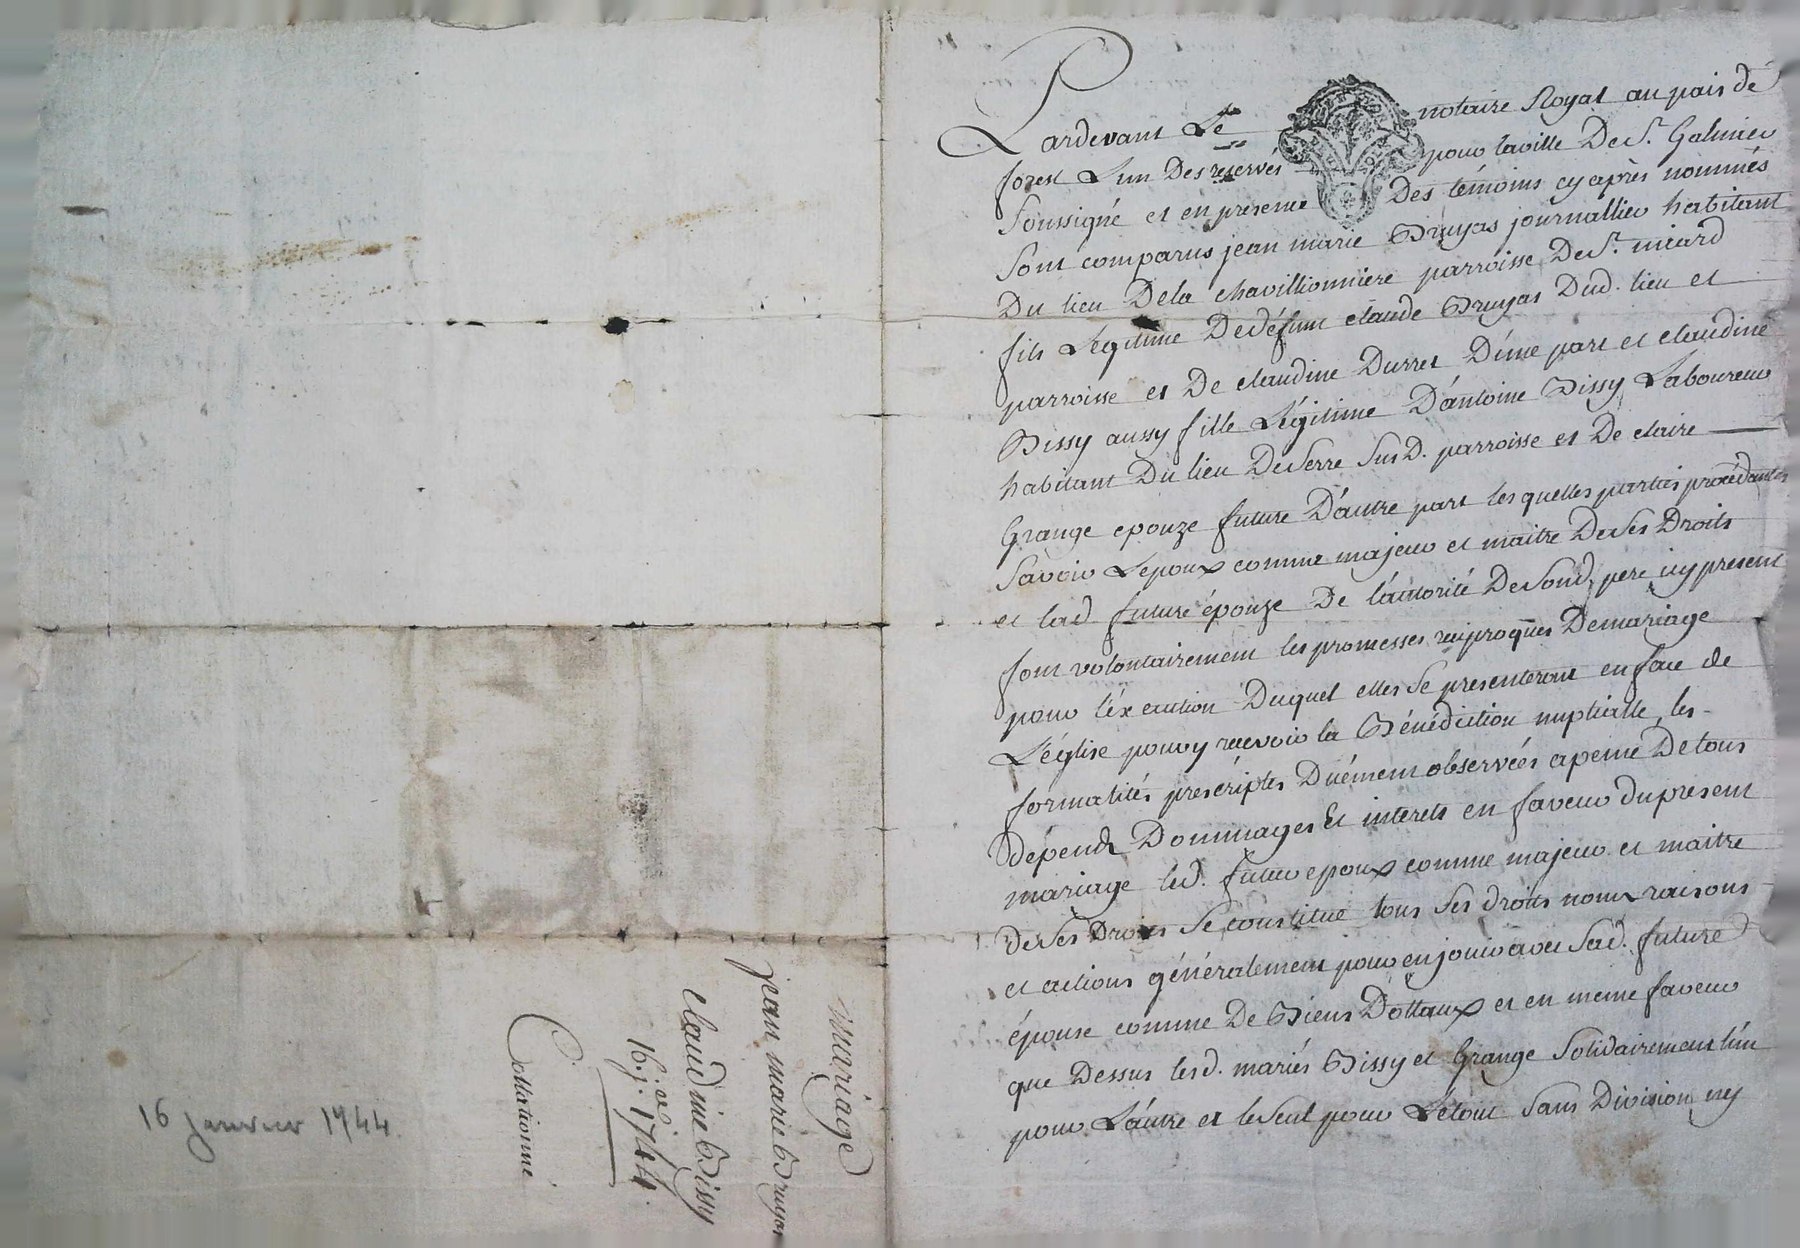 mariage
jean marie Bruyas
claudine Bissy
16. j.er 1744.
Collationné
16 janvier 1744.
Pardevant Le notaire Royal au pais de
forest L'un Des reservés pour la ville De St. Galmier
soussigné et en presence Des témoins cy après nommés
sont comparus jean marie Bruyas journallier habitant
Du lieu Dela chavillionniere parroisse De St. médard
fils Légitime De défunt claude Bruyas Dud. lieu et
parroisse et De claudine Durret D'une part et claudine
Bissy aussy fille Légitime D'antoine Bissy Laboureur
habitant Du lieu De serre susd. parroisse et De claire
Grange epouze future D'autre part les quelles parties procédantes
sàvoir L'epoux comme majeur et maitre De ses Droits
et lad. future épouze De l'autorité De sond. pere icy present
font volontairement les promesses reciproques De mariage
pour l'éxecution Duquel elles se presenteront en face de
L'église pour y recevoir la Bénédiction nuptialle, les
formalités prescriptes Duëment observées a peine De tous
dépends Dommages Et interets en faveur du present
mariage led. futur epoux comme majeur et maitre
de ses Droits se constitue tous ses droits noms raisons
et actions généralement pour en jouir avec sad. future
épouse comme De Biens Dottaux et en meme faveur
que Dessus lesd. mariés Bissy et Grange solidairement l'un
pour L'autre et le seul pour Le tout sans Division ny